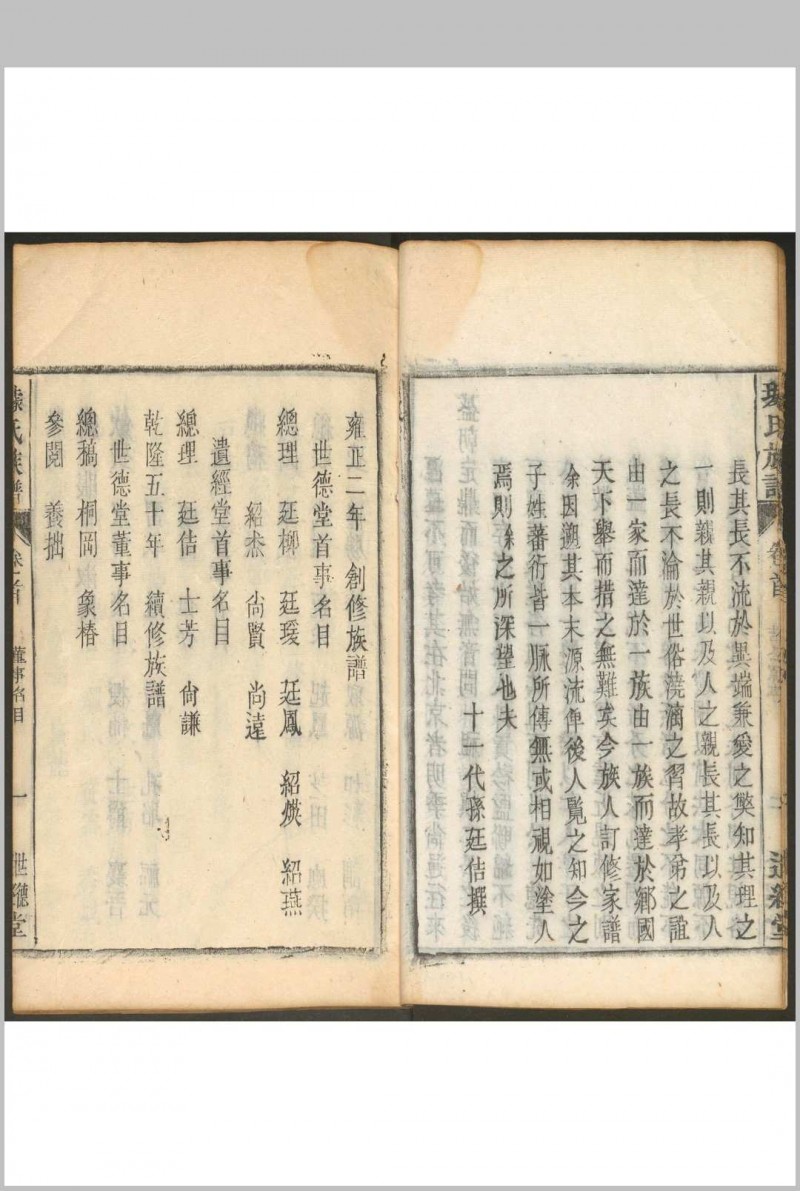 長其長不流於異端兼愛之獘知其理之
一則親其親以及人之親長其長以及人
之長不淪於世俗澆漓之習故孝弟之誼
由一家而達於一族由一族而達於鄉國
天下舉而措之無難矣今族人訂修家譜
余因遡其本末源流俾後人覧之知今之
子姓蕃衍皆一脉所傳無或相視如塗人
焉則余之所深望也夫
十一代孫廷佶撰
雍正二年 創修族譜
世德堂首事名目
總理 廷柳 廷瑗 廷鳳 紹煐 紹燕
紹杰 尚賢 尚遠
遺經堂首事名目
總理 廷佶 士芳 尙謙
乾隆五十年 續修族譜
世德堂董事名目
總稿 桐岡 象椿
參閱 養拙
氏族譜 卷首 董事名目 一 世德堂